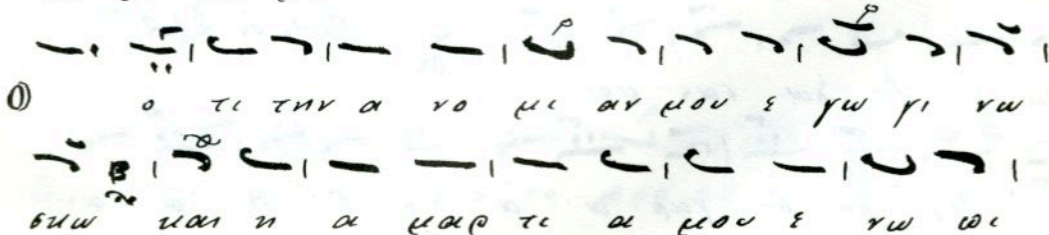 ο τι την α νο μι αν μου ε γω γι νω
σκω και η α μαρ τι α μου ε νω πι